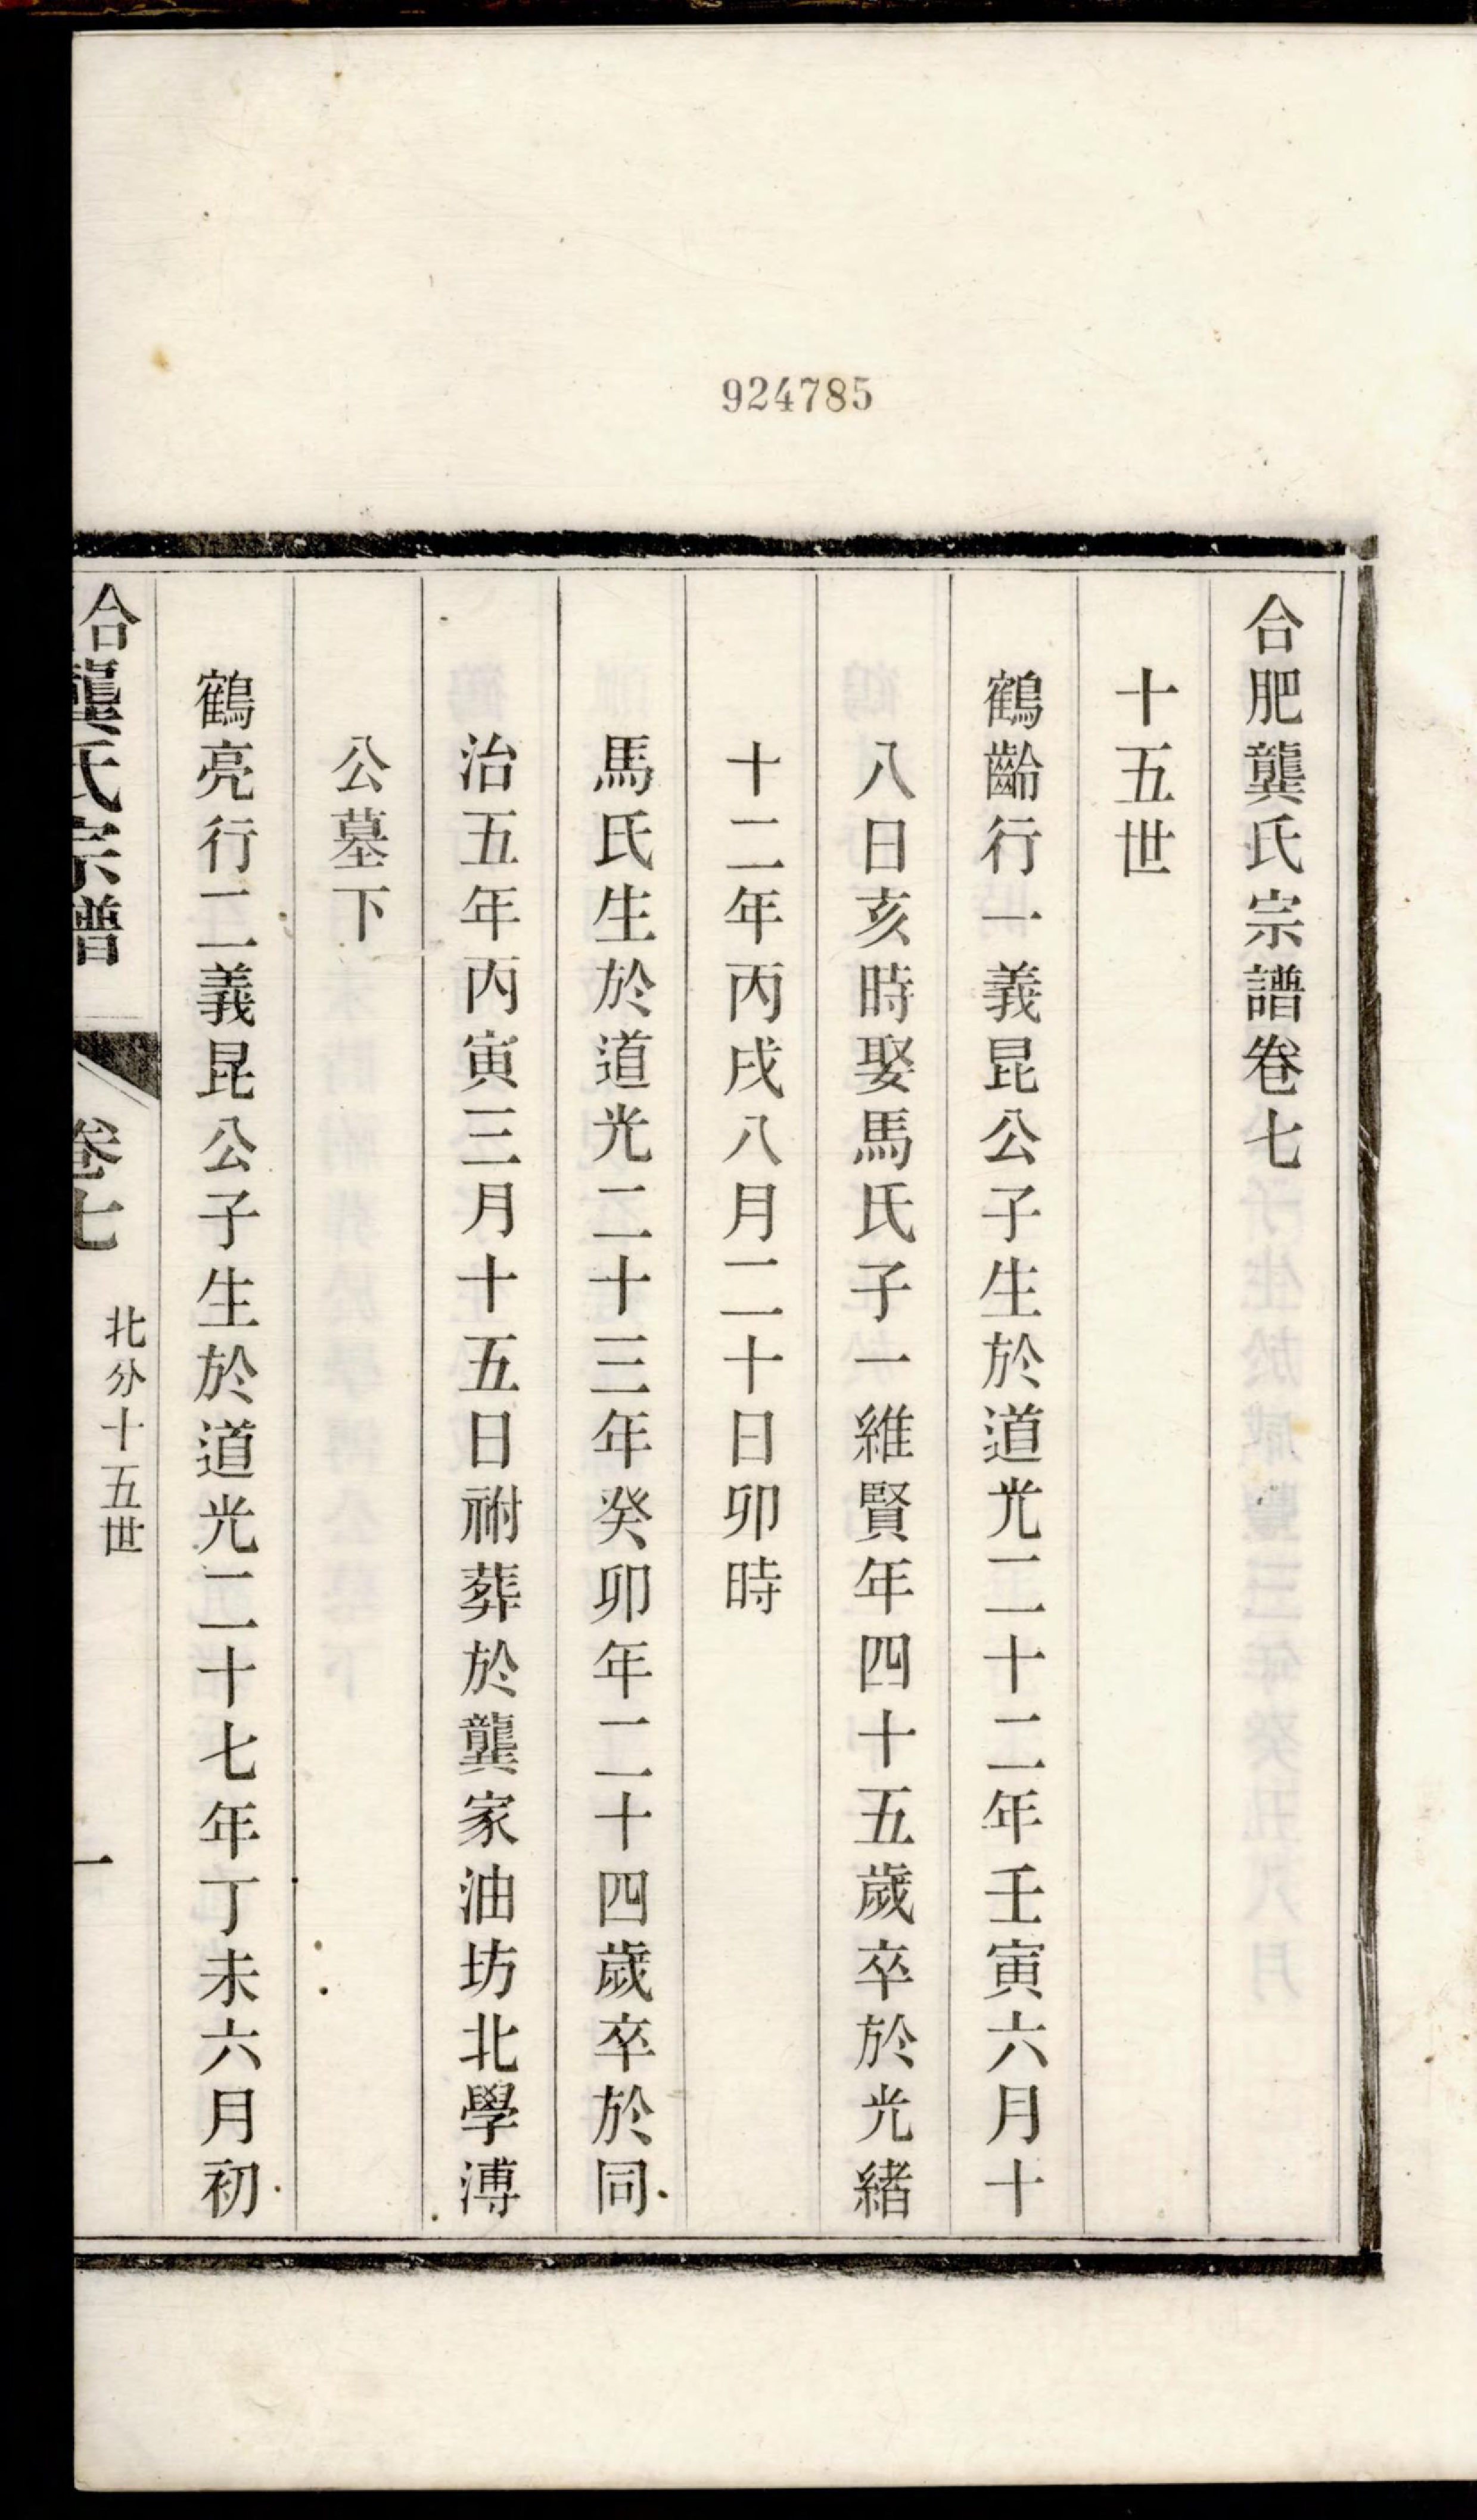 924785
合肥龔氏宗譜卷七
十五世
鶴齡行一義昆公子生於道光二十二年壬寅六月十
八日亥時娶馬氏子一維賢年四十五歲卒於光緒
十二年丙戌八月二十日卯時
馬氏生於道光二十三年癸卯年二十四歲卒於同
治五年丙寅三月十五日祔葬於龔家油坊北學溥
公墓下
鶴亮行二義昆公子生於道光二十七年丁未六月初
合 龔氏宗譜 卷七 北分十五世 一